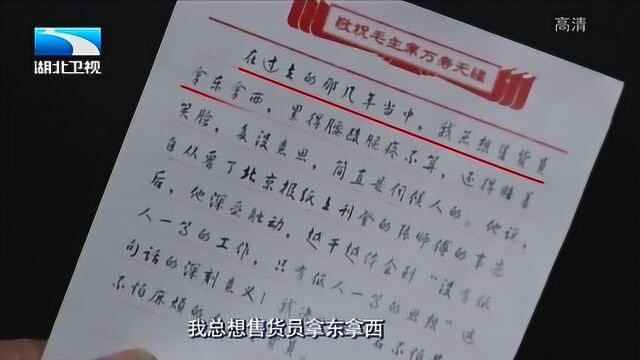 湖北卫视
高清
敬祝毛主席万寿无疆
在过去的那几年当中，我总想售货员
拿东拿西，累得腰酸腿疼不算，还得赔着
笑脸，多没意思，简直是伺候人的。他说，
自从看了北京报纸上刊登的张师傅的事迹
后，他深受触动，越干越体会到“没有低
人一等的工作，只有低人一等的思想”这
句话的深刻意义！我
不怕麻烦的
我总想售货员拿东拿西